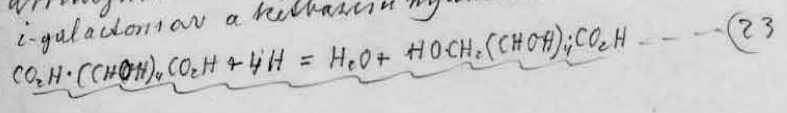 i-galactonsav a
CO₂H·(CHOH)₄CO₂H + 4H = H₂O + HO·CH₂(CHOH)₄·CO₂H - - - - (23